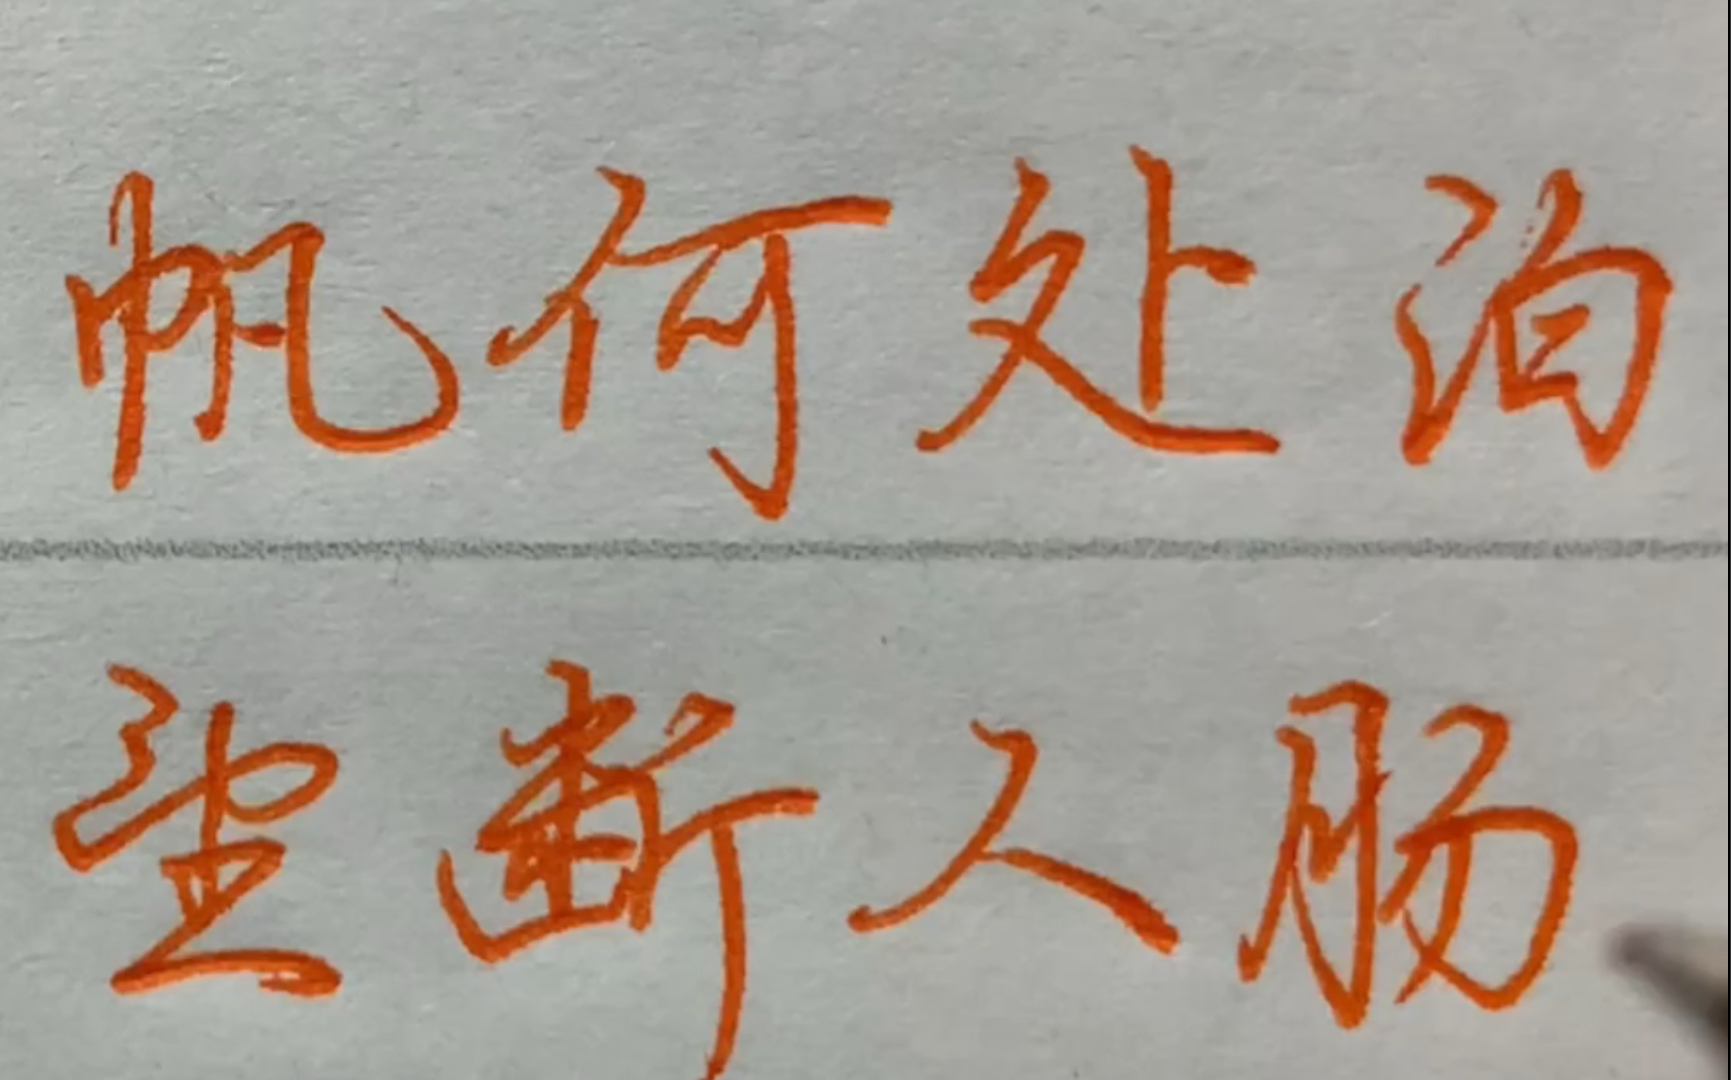 帆何处泊
望断人肠